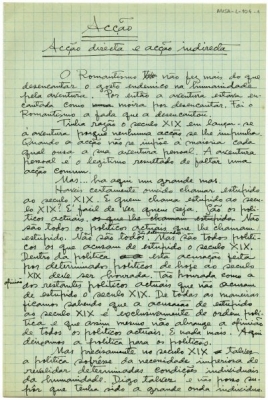 Acção
Acção directa e acção indirecta
O Romantismo não fez mais do que
desencantar o gosto endemico na humanidade
pela aventura. Por então a aventura estava en-
cantada como uma moira por desencantar. Foi o
Romantismo a fada que a desencantou.
Tinha razão o século XIX em lançar-se
à aventura porque nenhuma acção se lhe impunha.
Quando a acção não se impõe à maioria cada
qual ousa a sua aventura pessoal. A aventura
pessoal é o legitimo resultado de faltar uma
acção comum.
Mas... ha aqui um grande mas.
Haveis certamente ouvido chamar estupido
ao século XIX. E quem chama estupido ao secu-
lo XIX? É facil de ver quem seja. São os poli-
ticos actuais os que lhe chamam estupido. Não
são todos os politicos actuais que lhe chamam
estupido. Não são todos. Mas são todos politi-
cos os que acusam de estupido o século XIX.
Dentro da politica esta acusação feita
por determinados politicos de hoje ao seculo
XIX deve ser honrada. Tão honrada como a
opinião
dos restantes politicos actuais que não acusam
de estupido o século XIX. De todas as maneiras
ficamos sabendo que a acusação de estupido
ao século XIX é exclusivamente de ordem poli-
tica e que assim mesmo não abrange a opinião
de todos os politicos actuais. E nada mais. Aqui
deixamos a politica para os politicos.
Mas precisamente no século XIX talvez
a politica sofresse da necessidade imperiosa de
revalidar determinadas condições individuais
da humanidade. Digo talvez e não posso su-
por que tenha sido a grande onda individua-